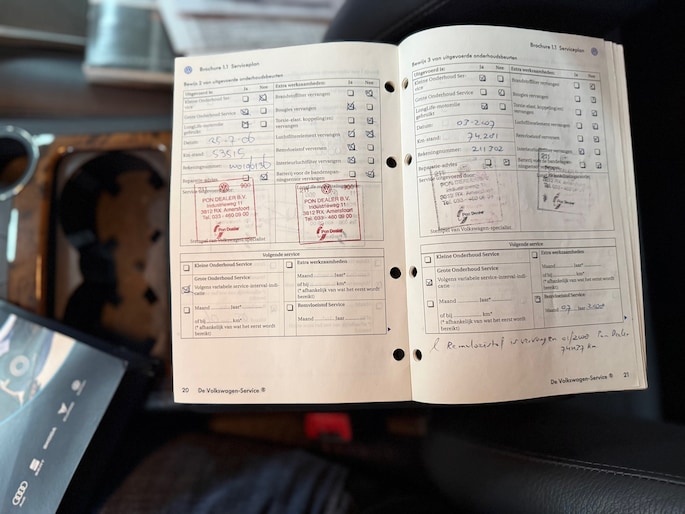 Brochure 1.1 Serviceplan
Bewijs 2 van uitgevoerde onderhoudsbeurten
Uitgevoerd is: Ja Nee
Kleine Onderhoud Service
Grote Onderhoud Service
LongLife-motorolie gebruikt
Datum: 25-7-06
Km-stand: 53515
Rekeningnummer:
Reparatie-advies
Extra werkzaamheden: Ja Nee
Brandstoffilter vervangen
Bougies vervangen
Luchtfilterelement vervangen
Remvloeistof vervangen
Interieurluchtfilter vervangen
PON DEALER B.V.
Industrieweg 11
3812 RX Amersfoort
Tel. 033 - 460 09 00
Pon Dealer
PON DEALER B.V.
Industrieweg 11
3812 RX Amersfoort
Tel. 033 - 460 09 00
Pon Dealer
Stempel van Volkswagen-specialist
Volgende service
Kleine Onderhoud Service
Grote Onderhoud Service
Volgens variabele service-interval-indicatie
Maand jaar*
of bij km*
(* afhankelijk van wat het eerst wordt bereikt)
Extra werkzaamheden:
Maand jaar*
of bij km*
(* afhankelijk van wat het eerst wordt bereikt)
Remvloeistof Service
Maand jaar
20 De Volkswagen-Service ®
Brochure 1.1 Serviceplan
Bewijs 3 van uitgevoerde onderhoudsbeurten
Uitgevoerd is: Ja Nee
Kleine Onderhoud Service
Grote Onderhoud Service
LongLife-motorolie gebruikt
Datum:
Km-stand: 74.281
Rekeningnummer: 211702
Reparatie-advies
Service uitgevoerd door:
Extra werkzaamheden: Ja Nee
Brandstoffilter vervangen
Bougies vervangen
Luchtfilterelement vervangen
Remvloeistof vervangen
Interieurluchtfilter vervangen
PON DEALER B.V.
Stempel van Volkswagen-specialist
Volgende service
Kleine Onderhoud Service
Grote Onderhoud Service
Volgens variabele service-interval-indicatie
Maand jaar*
of bij km*
(* afhankelijk van wat het eerst wordt bereikt)
Extra werkzaamheden:
Maand jaar*
of bij km*
(* afhankelijk van wat het eerst wordt bereikt)
Remvloeistof Service
Maand 07 jaar
Pon Dealer
De Volkswagen-Service ® 21
Audi